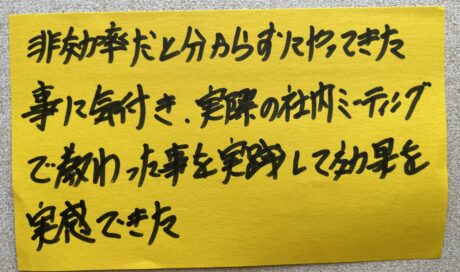 非効率だと分からずにやってきた
事に気付き、実際の社内ミーティング
で教わった事を実践して効果を
実感できた